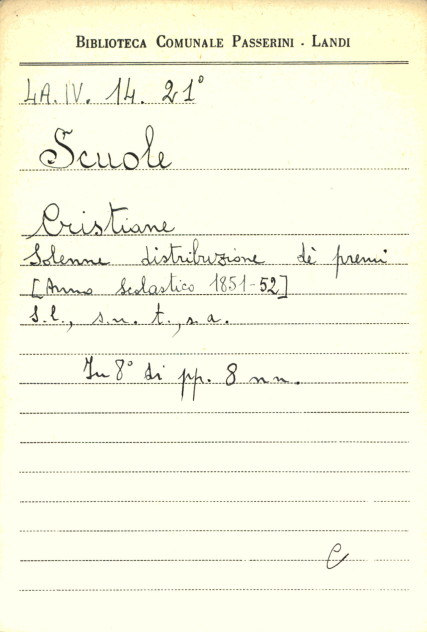 BIBLIOTECA COMUNALE PASSERINI - LANDI
4A. IV. 14. 21°
Scuole
Cristiane
Solenne distribuzione dè premi
[Anno scolastico 1851-52]
S.l., s.n.t., s.a.
In 8° di pp. 8 nn.
C